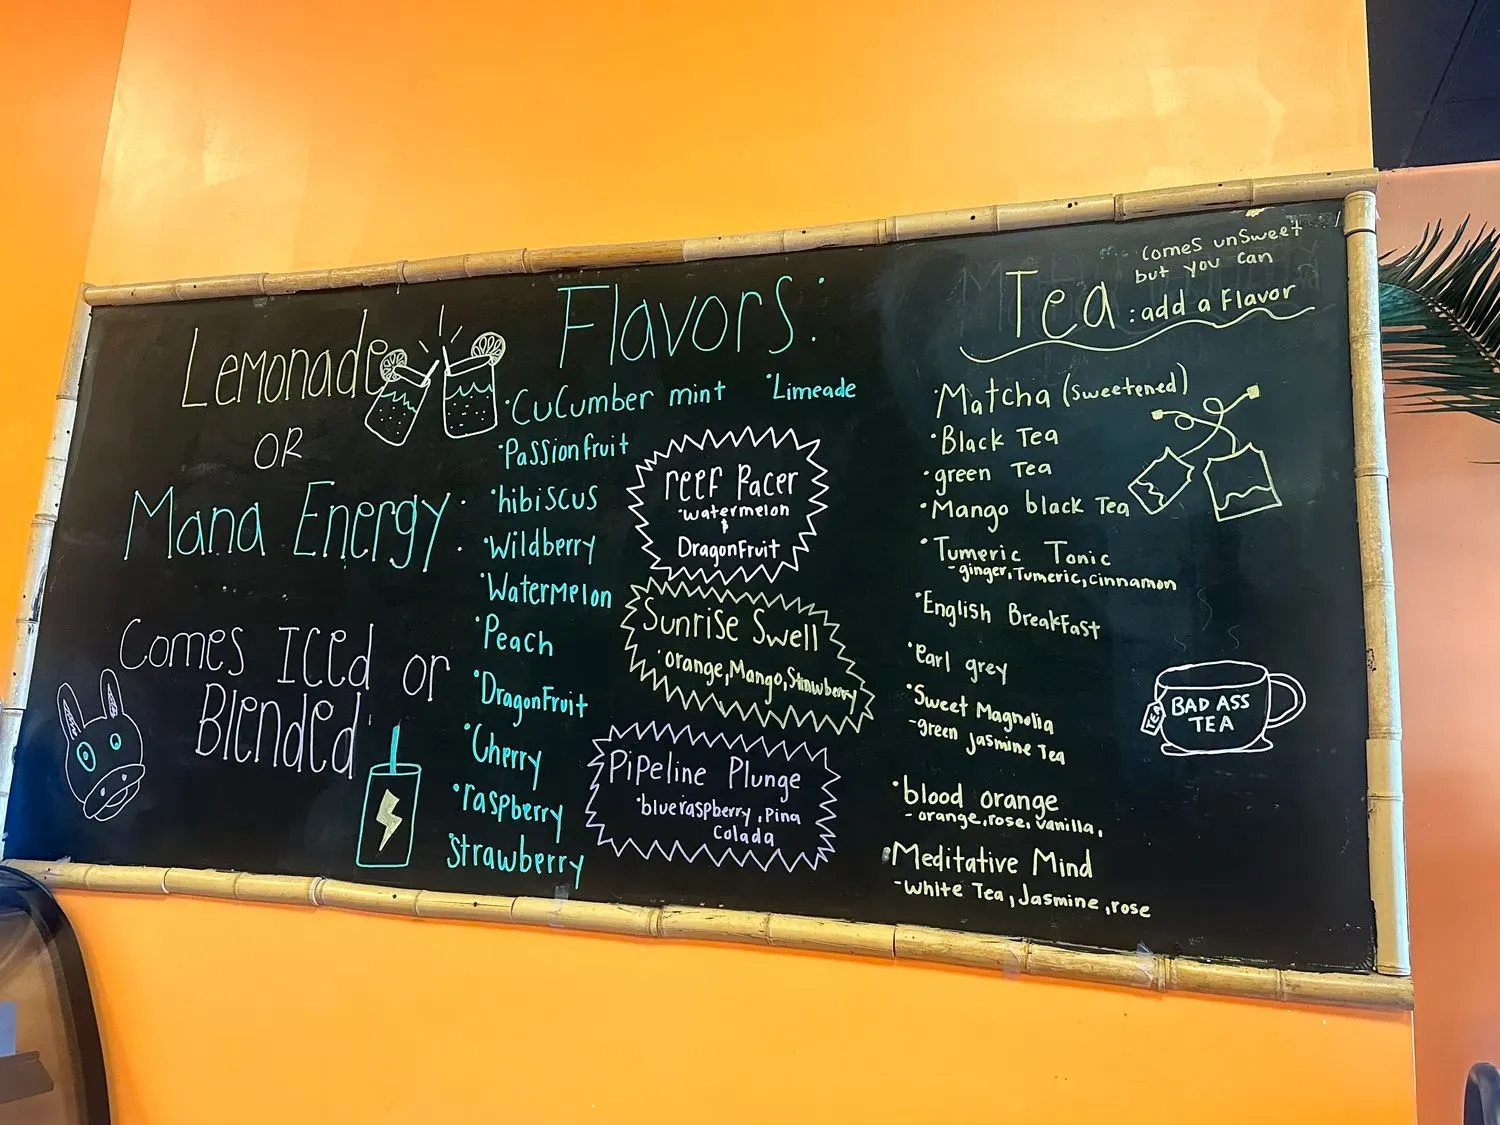 Lemonade
OR
Mana Energy
Comes Iced or
Blended
Flavors:
•Cucumber mint
•Limeade
•Passionfruit
•hibiscus
•Wildberry
•Watermelon
•Peach
•DragonFruit
•Cherry
•raspberry
•Strawberry
reef Racer
•watermelon
&
DragonFruit
Sunrise Swell
•orange, Mango, Strawberry
Pipeline Plunge
•blue raspberry, Pina
Colada
Tea:
Comes unSweet
but you can
add a Flavor
•Matcha (sweetened)
•Black Tea
•green Tea
•Mango black Tea
•Tumeric Tonic
-ginger, Tumeric, cinnamon
•English BreakFast
•earl grey
•Sweet Magnolia
-green jasmine Tea
•blood orange
-orange, rose, vanilla,
•Meditative Mind
-white Tea, Jasmine, rose
TEA
BAD ASS
TEA